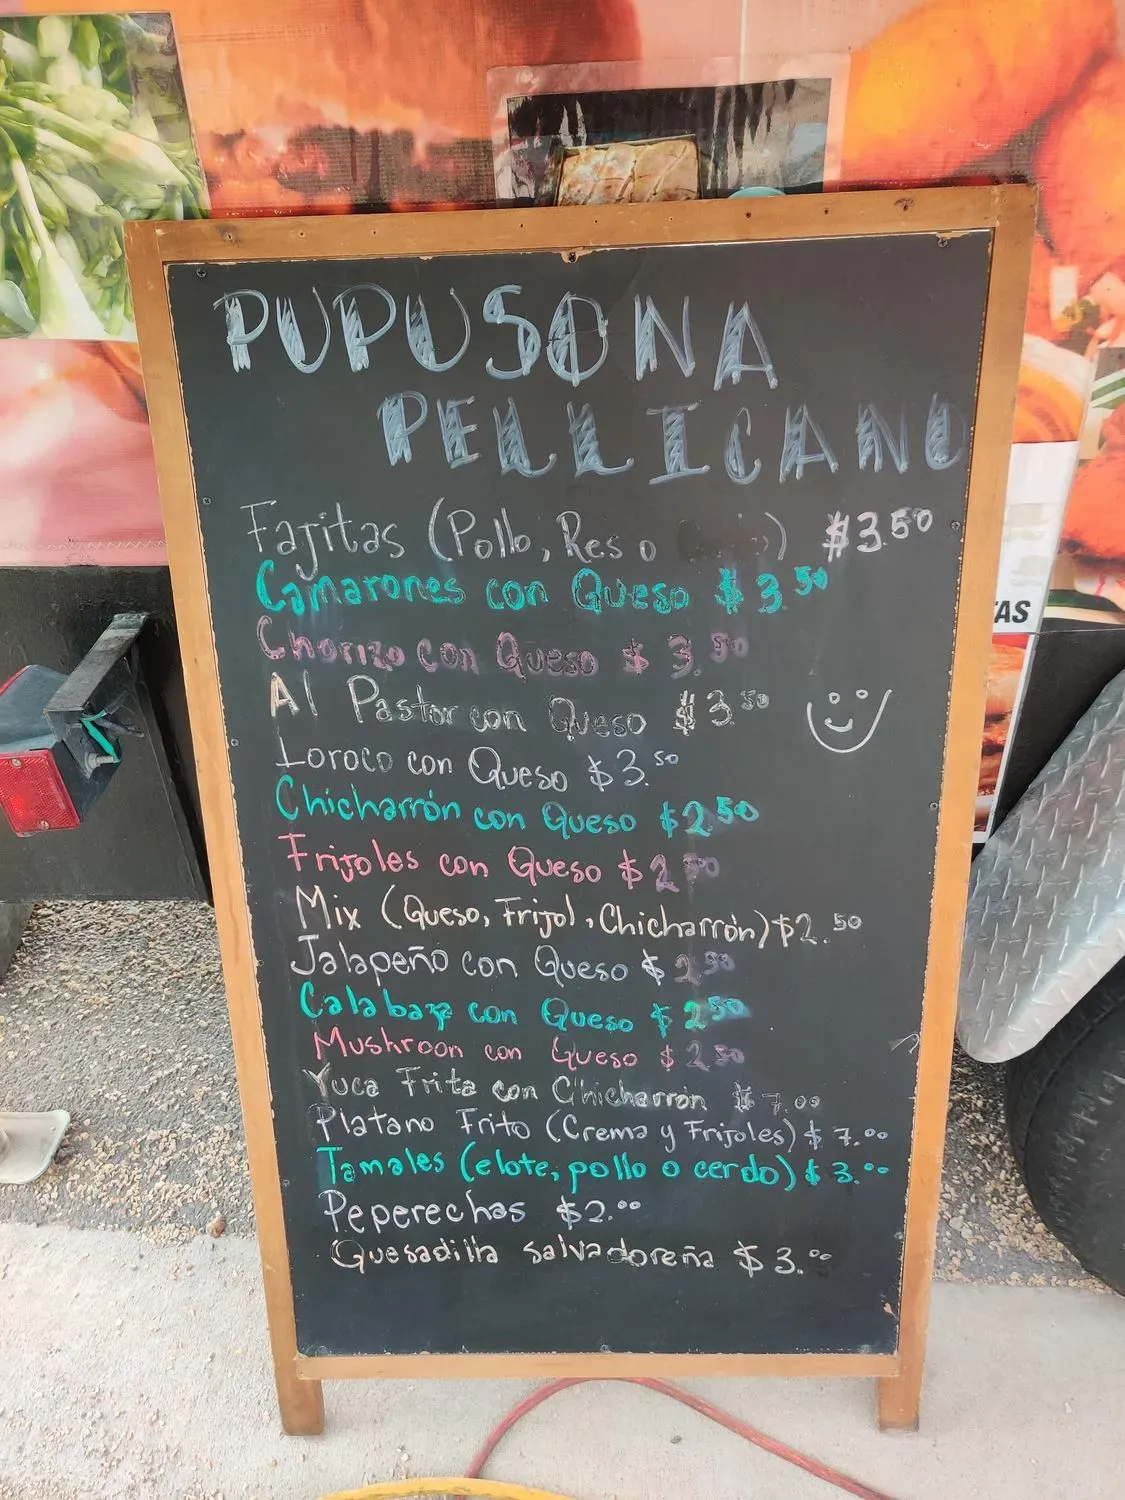 PUPUSONA
PELLICANO
Fajitas (Pollo, Res o ) $3.50
Camarones con Queso $3.50
Chorizo con Queso $3.50
Al Pastor con Queso $3.50
Loroco con Queso $3.50
Chicharrón con Queso $2.50
Frijoles con Queso $2.50
Mix (Queso, Frijol, Chicharrón) $2.50
Jalapeño con Queso $2.50
Calabaza con Queso $2.50
Mushroon con Queso $2.50
Yuca Frita con Chicharron $7.00
Platano Frito (Crema y Frijoles) $7.00
Tamales (elote, pollo o cerdo) $3.00
Peperechas $2.00
Quesadilla Salvadoreña $3.00
AS